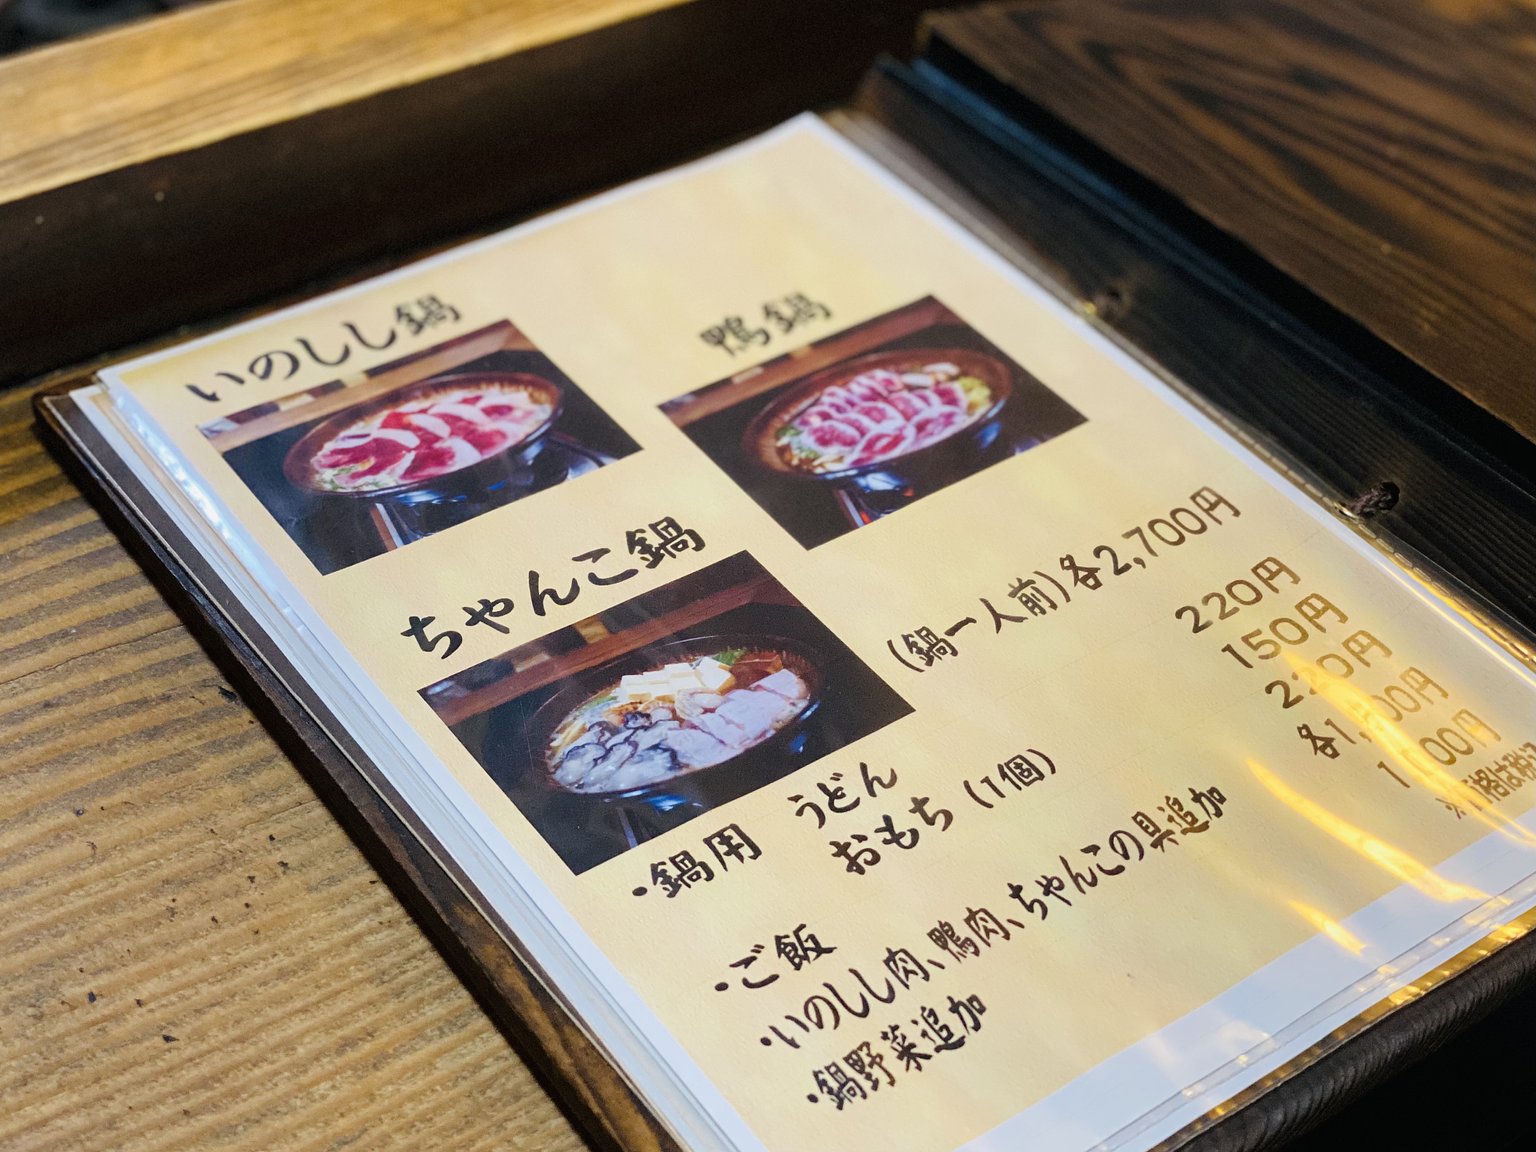 いのしし鍋
鴨鍋
ちゃんこ鍋
(鍋一人前)各2,700円
・鍋用 うどん 220円
おもち(1個) 150円
・ご飯 220円
・いのしし肉、鴨肉、ちゃんこの具追加 各1, 00円
・鍋野菜追加 00円